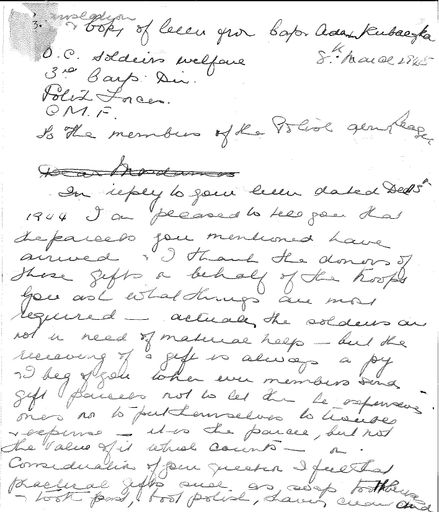 Translation
3. & Copy of letter from Capt Adam Kubaczka
O.C. Soldiers Welfare 8th March 1945
3rd Carp. Div.
Polish Forces.
C.M.F.
To the members of the Polish Army League
Dear Mesdames
In reply to your letter dated Dec 15th
1944 I am pleased to tell you that
the parcels you mentioned have
arrived & I thank the donors of
these gifts on behalf of the troops
You ask what things are most
required — actually the soldiers are
not in need of material help — but the
receiving of a gift is always a joy
& I beg of you when ever members send
gift parcels not to let them be expensive
ones nor to put themselves to trouble
& expense — it is the parcel, but not
the value of it which counts — on
Consideration of your question I feel that
practical gifts such as soap toothbrush
— tooth paste, boot polish, shaving cream and